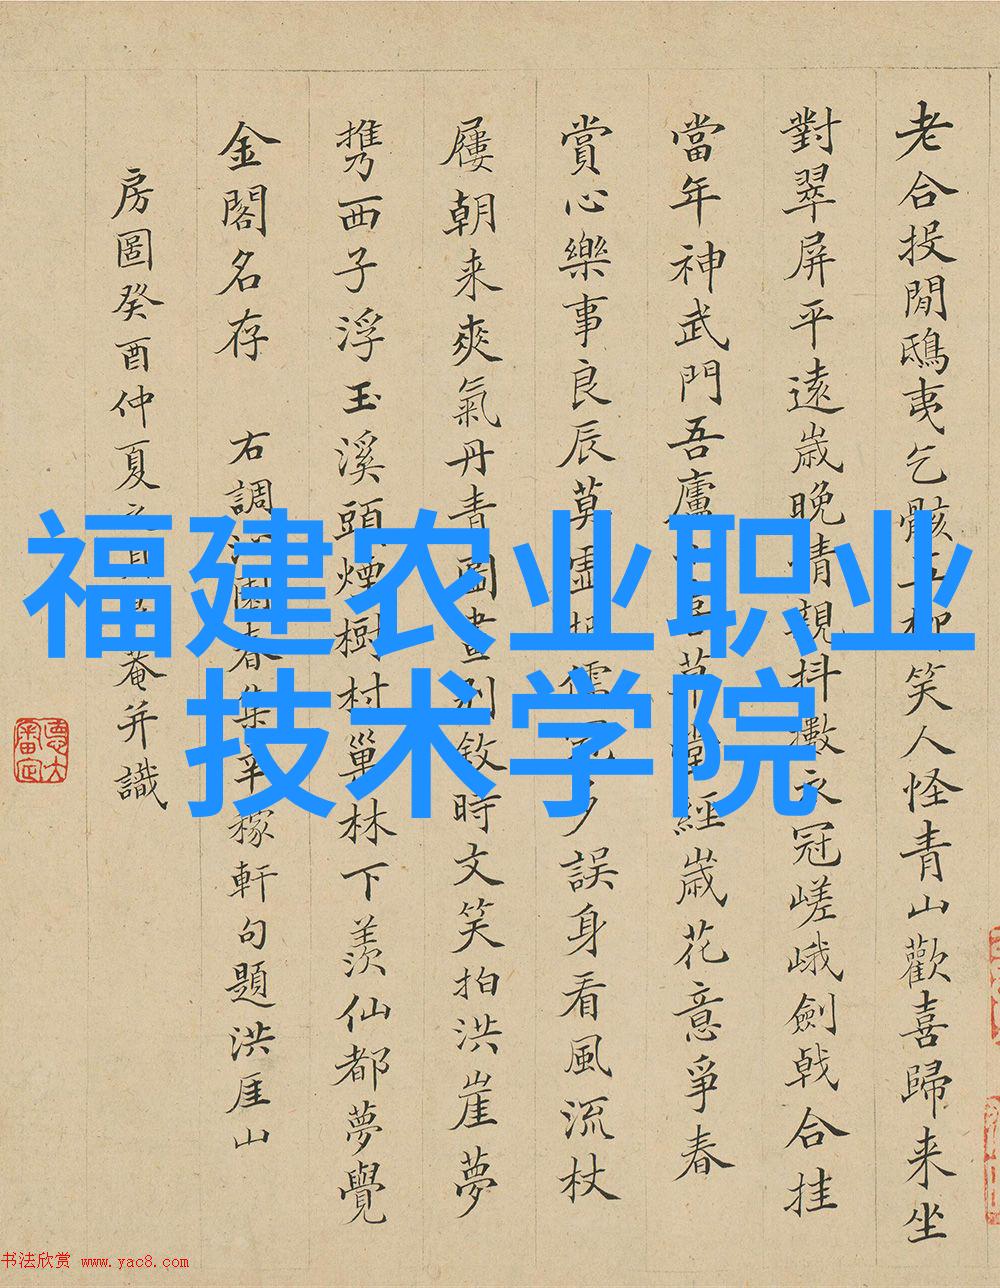 老合投閒鴟夷乞骸五柳笑人怪青山歡喜歸来坐
對翠屏平遠歳晚晴親抖擻衣冠嵯峨劍戟合挂
當年神武門吾廬草堂經歳花意爭春
賞心樂事良辰莫虛擲儒冠多誤身看風流杖
屨朝来爽氣丹青圖畫別敘時文笑拍洪崖夢
携西子浮玉溪頭煙樹村巢林下羨仙都夢覺
金閣名存 右調沁園春集辛稼軒句題洪厓山
房圖癸酉仲夏之菴并識
福建农业职业
技术学院
书法欣赏 www.yac8.com